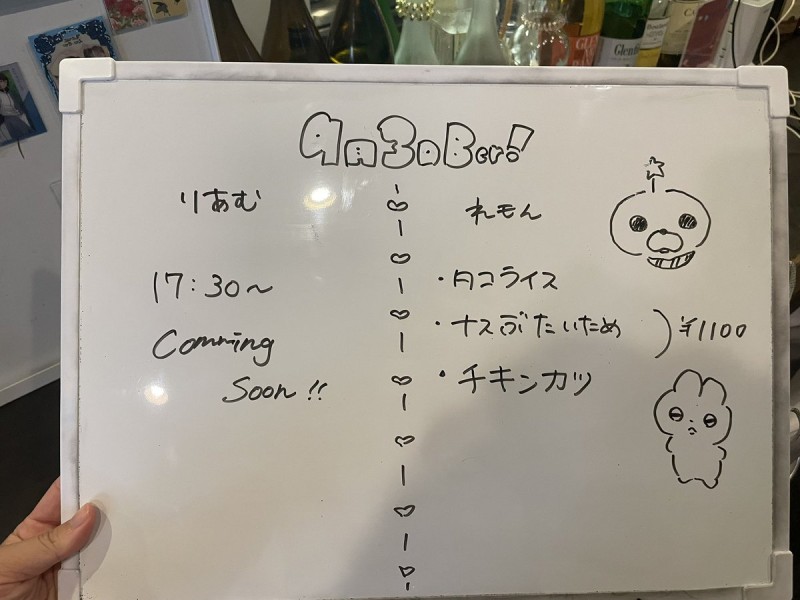 りあむ
17:30～
Comming
Soon!!
れモん
・タコライス
・ナスぶたいため
・チキンカツ
¥1100
Glen